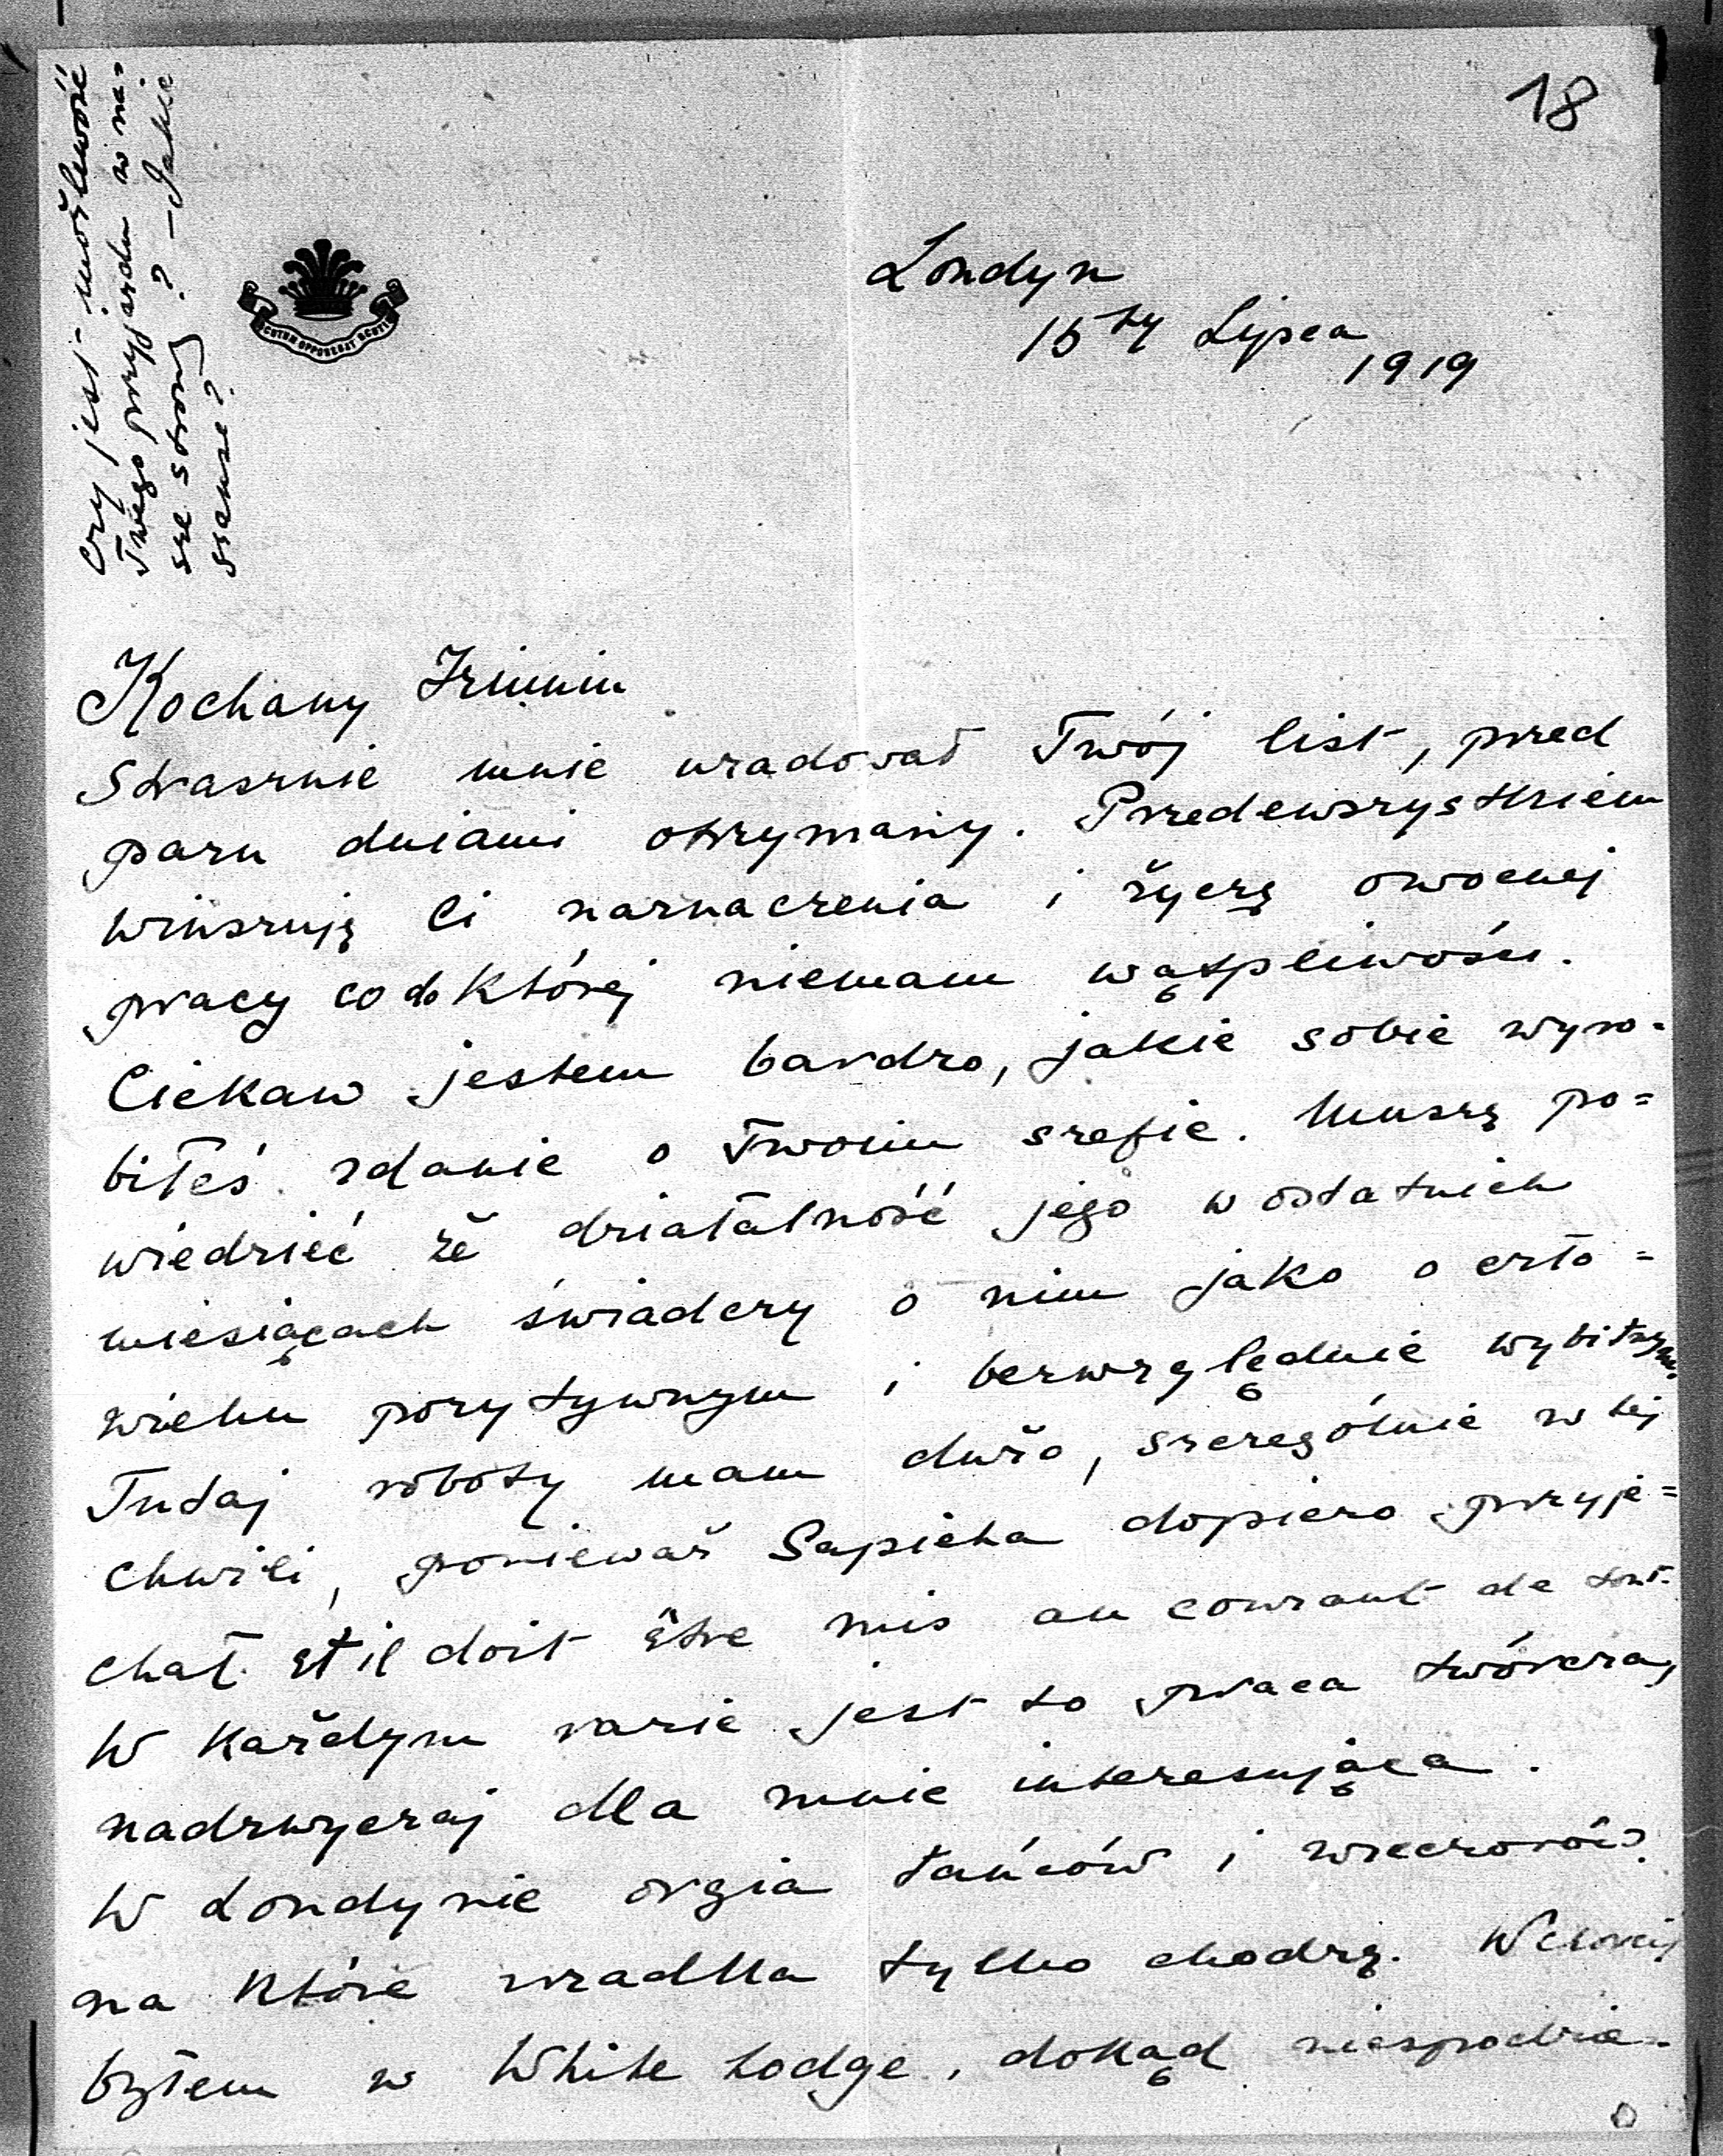 18
czy jest możliwość
Twego przyjazdu w na-
sze strony? – Jakie
szanse?
SCUTUM OPPONEBAT SCUTIS
Londyn
15ty Lipca
1919
Kochany
Strasznie mnie uradował Twój list, przed
paru dniami otrzymany. Przedewszystkiem
winszuję Ci naznaczenia i życzę owocnej
pracy co do której niemam wątpliwości.
Ciekaw jestem bardzo, jakie sobie wyro=
biłeś zdanie o Twoim szefie. Muszę po=
wiedzieć że działalność jego w ostatnich
miesiącach świadczy o nim jako o czło=
wieku pozytywnym i bezwzględnie wybitnym.
Tutaj roboty mam dużo, szczególnie w tej
chwili, ponieważ Sapieha dopiero przyje=
chał et il doit être mis au courant de tout.
W każdym razie jest to praca twórcza,
nadzwyczaj dla mnie interesująca.
W Londynie orgia tańców i wieczorów
na które rzadka tylko chodzę. Wczoraj
byłem w White Lodge, dokąd niespodzie-